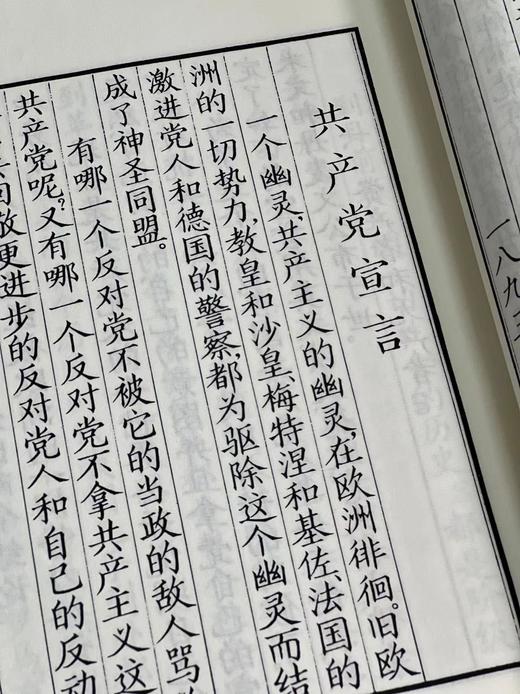 一八九
共产党宣言
一个幽灵,共产主义的幽灵,在欧洲徘徊。旧欧
洲的一切势力,教皇和沙皇,梅特涅和基佐,法国的
激进党人和德国的警察,都为驱除这个幽灵而结
成了神圣同盟。
有哪一个反对党不被它的当政的敌人骂
共产党呢?又有哪一个反对党不拿共产主义这
更进步的反对党人和自己的反动